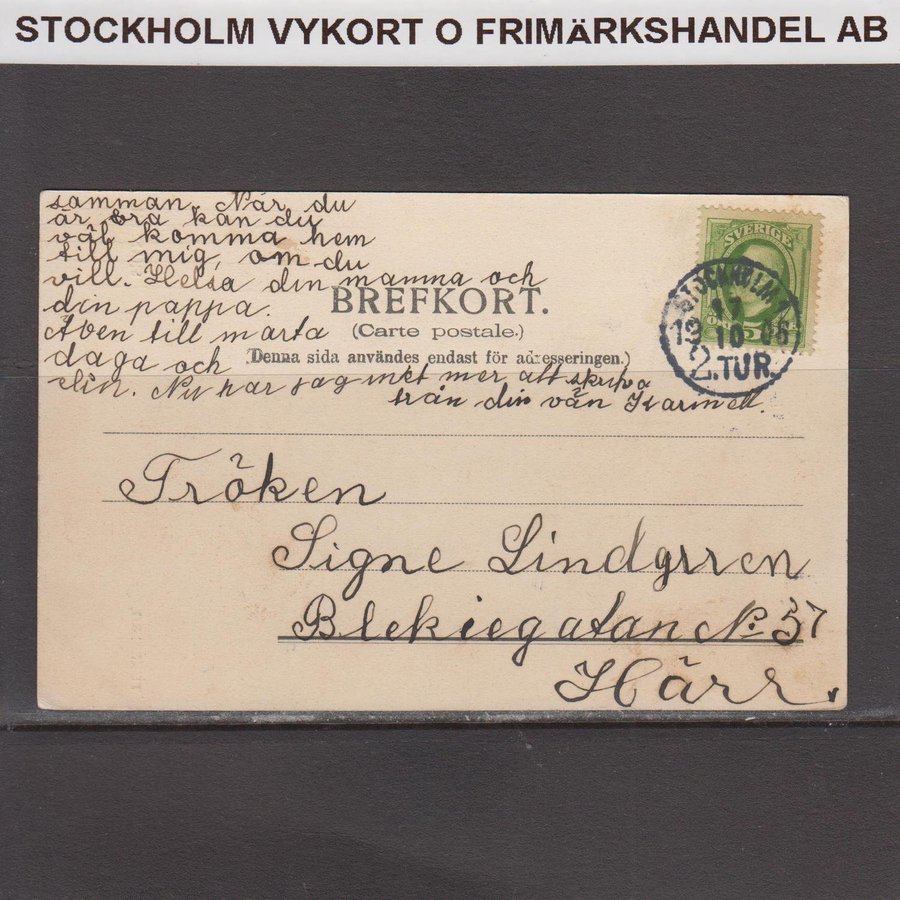 STOCKHOLM VYKORT O FRIMÄRKSHANDEL AB
samman. När du
är bra kan du
väl komma hem
till mig, om du
vill. Helsa din mamma och
din pappa.
Även till marta
daga och
elin. Nu har jag inkt mer att skriva
från din vän Karin
BREFKORT.
(Carte postale.)
(Denna sida användes endast för adresseringen.)
SVERIGE
5
STOCKHOLM
17
19 10 06
2.TUR.
Fröken
Signe Lindgrren
Blekiegatan No 57
Härr.